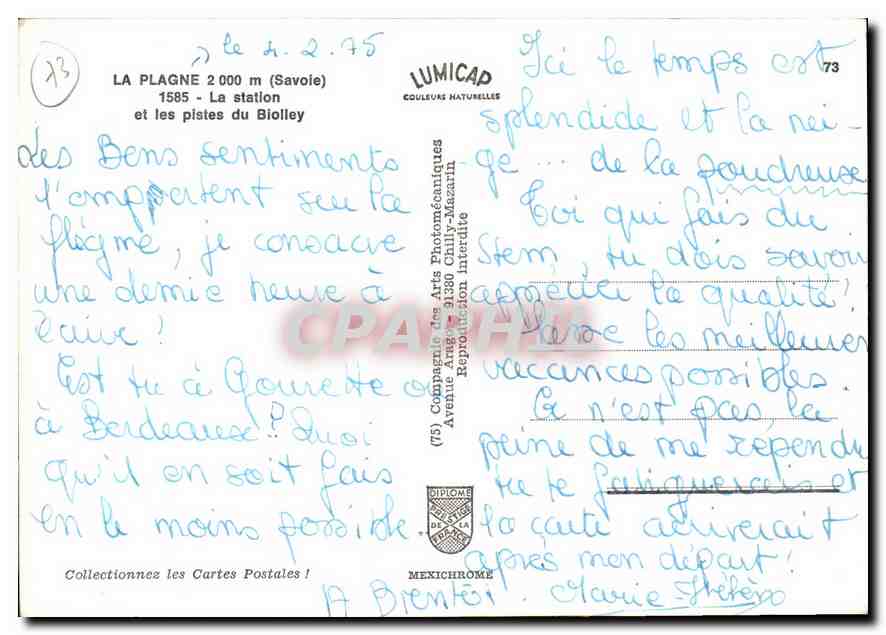 73
le 4.2.75
LA PLAGNE 2 000 m (Savoie)
1585 - La station
et les pistes du Biolley
Les Bons sentiments
l'emportent sur la
flegme, je consacre
une demie heure à
t'écrire!
Est tu à Gourette ou
à Bordeaux? Quoi
qu'il en soit fais
en le moins possible
Collectionnez les Cartes Postales !
LUMICAP
COULEURS NATURELLES
(75) Compagnie des Arts Photomécaniques
Avenue Aragon - 91380 Chilly-Mazarin
Reproduction interdite
DIPLOME
PRESTIGE
DE LA
FRANCE
MEXICHROME
73
Ici le temps est
splendide et la nei-
ge... de la poudreuse
Toi qui fais du
Stem, tu dois savoir
apprécier la qualité!
Passe les meilleures
vacances possibles.
Ce n'est pas la
peine de me répendre
tu te fatiguerais et
la carte arriverait
après mon départ!
A Bientôt. Marie-Hélène
CPARHAMA